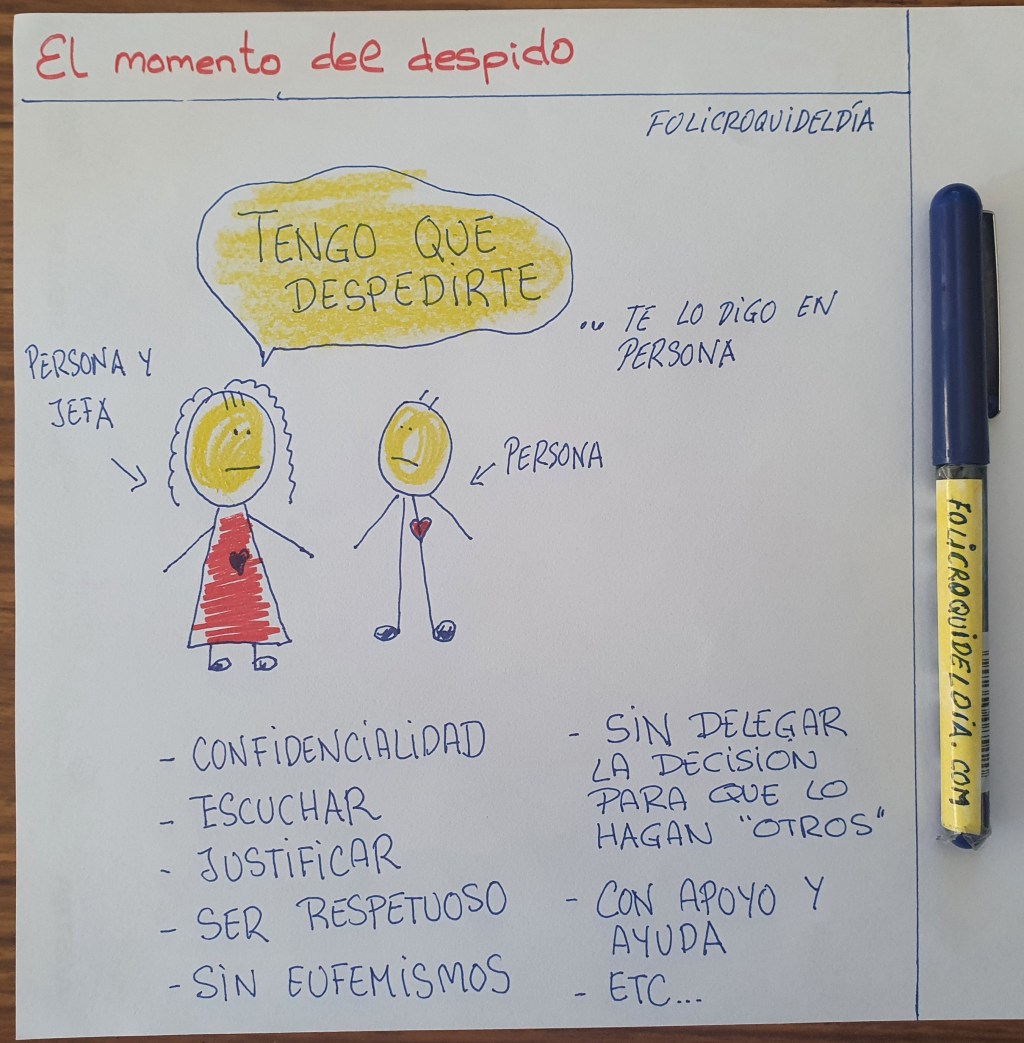 El momento del despido
FOLICROQUIDELDÍA
TENGO QUE
DESPEDIRTE
... TE LO DIGO EN
PERSONA
PERSONA Y
JEFA
PERSONA
- CONFIDENCIALIDAD
- ESCUCHAR
- JUSTIFICAR
- SER RESPETUOSO
- SIN EUFEMISMOS
- SIN DELEGAR
LA DECISION
PARA QUE LO
HAGAN "OTROS"
- CON APOYO Y
AYUDA
- ETC...
FOLICROQUIDELDIA.COM